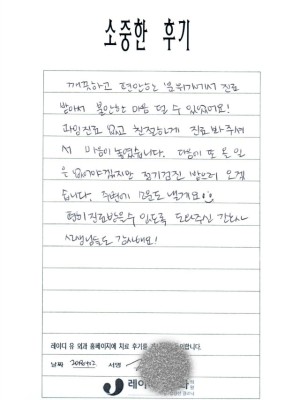 소중한 후기
깨끗하고 편안한 분위기에서 진료
받아서 불안한 마음 덜 수 있었어요!
과잉진료 없고 친절하게 진료 봐주셔
서 마음이 놓였습니다. 다음에 또 올 일
은 없어야겠지만 정기검진 받으러 오겠
습니다. 주변에 소문도 낼게요
편히 진료받을수 있도록 도와주신 간호사
선생님들도 감사해요!
레이디 유 외과 홈페이지에 치료 후기를 합니다.
날짜 서명
레이디